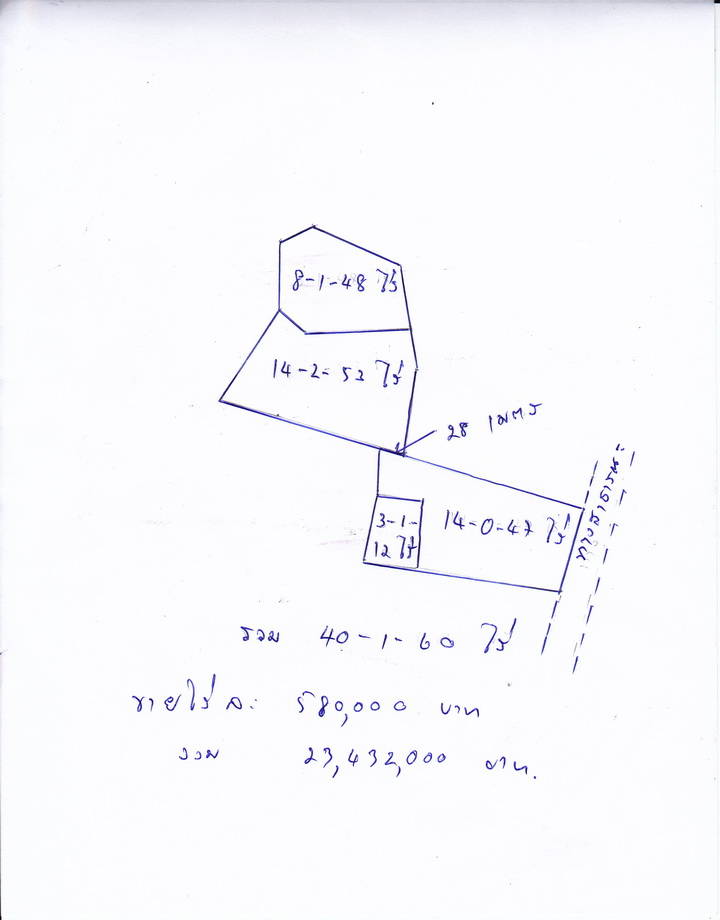 8-1-48 ไร่
14-2-53 ไร่
28 เมตร
ทางสาธารณะ
3-1-
12 ไร่
14-0-47 ไร่
รวม 40-1-60 ไร่
ขายไร่ละ 580,000 บาท
รวม 23,432,000 บาท.